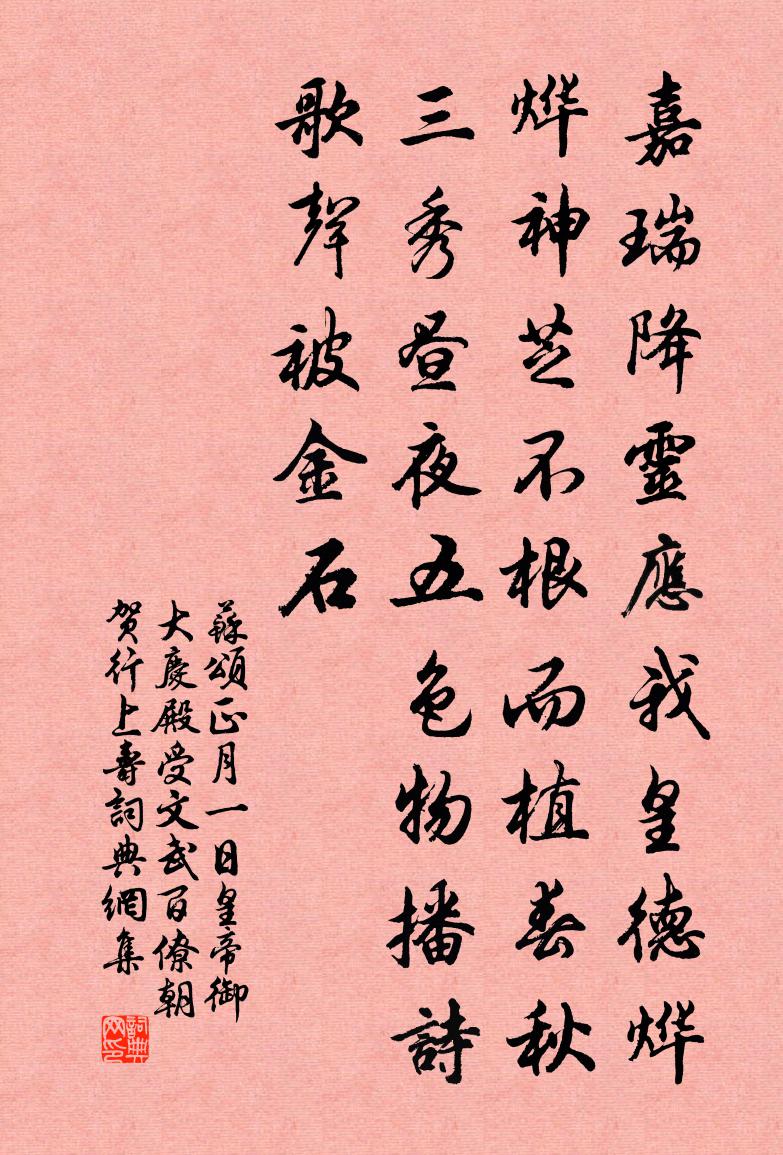 嘉瑞降靈應我皇德烨
烨神芝不根而植春秋
三秀昼夜五色物播詩
歌聲被金石
蘇頌正月一日皇帝御
大慶殿受文武百僚朝
贺行上壽詞典網集
詞典
网印